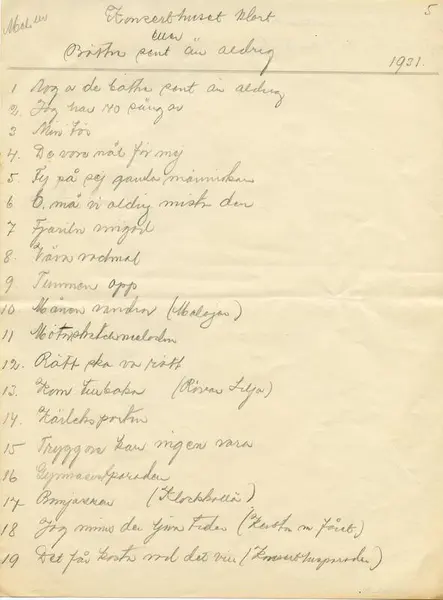 5
Konserthuset klart
eller
Bättre sent än aldrig
1931.
1 Nog ä de bättre sent än aldrig
2. Jag har 40 sångar
3 Min bör
4. De vore nåt för mej
5. Fy på sej ganda människan
6 må vi aldrig mista den
7 Fräulein
8. Våra vadmal
9. Tummen opp
10 Månen vandrar (Malajen)
11
12. Rätt ska va rätt
13. Kom tillbaka (Rövar Lilja)
14. Kärleksporten
15 Tryggare kan ingen vara
16 Gymnasistparaden
17 (Klockhollä)
18 Jag minns den ljuva tiden (Kersta m fåret)
19 Det får kosta vad det vill (Konserthusparaden)